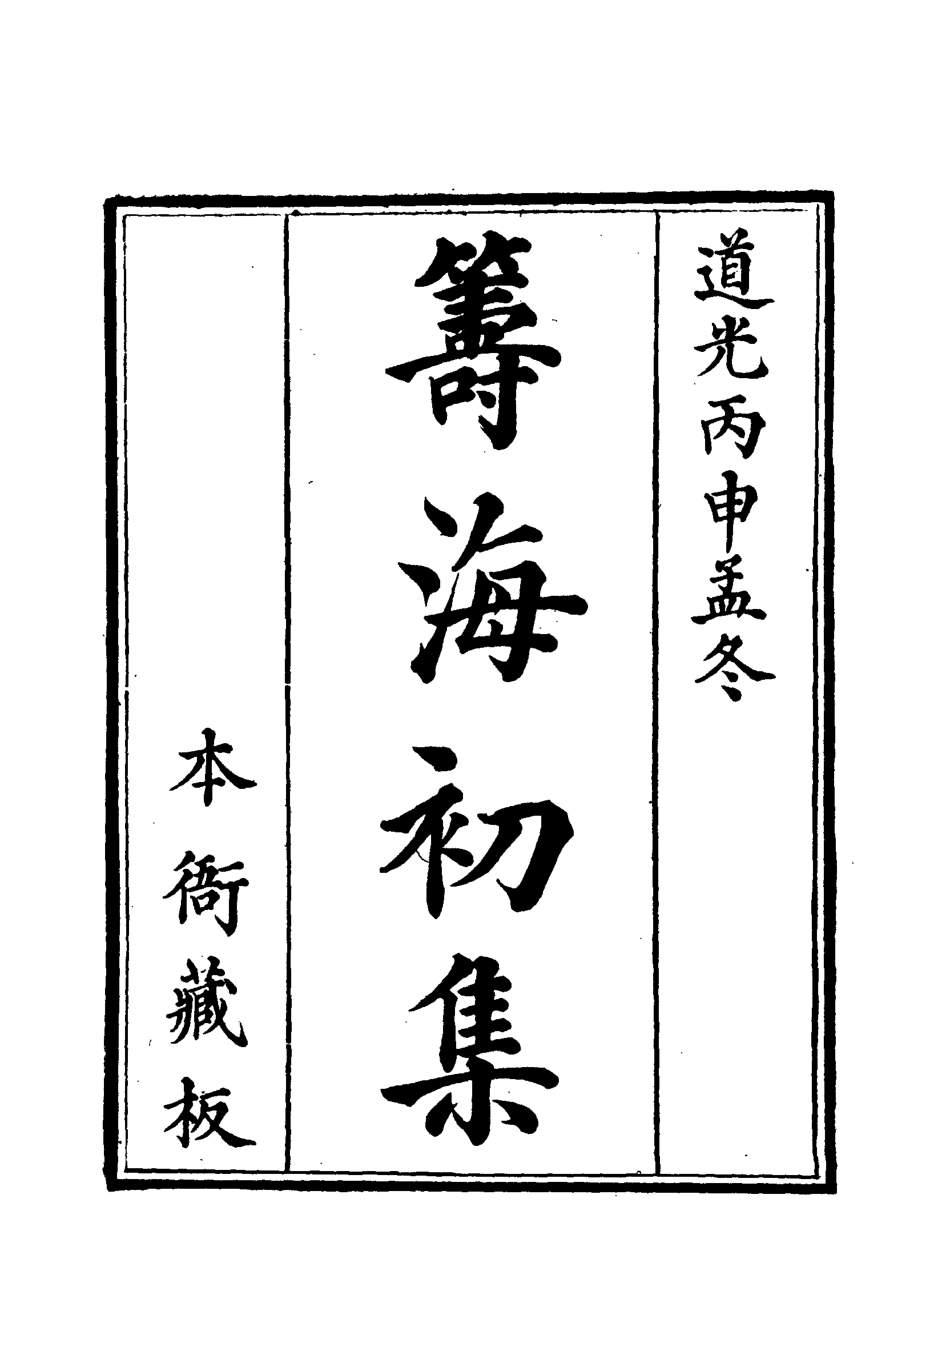 道光丙申孟冬
籌海初集
本衙藏板